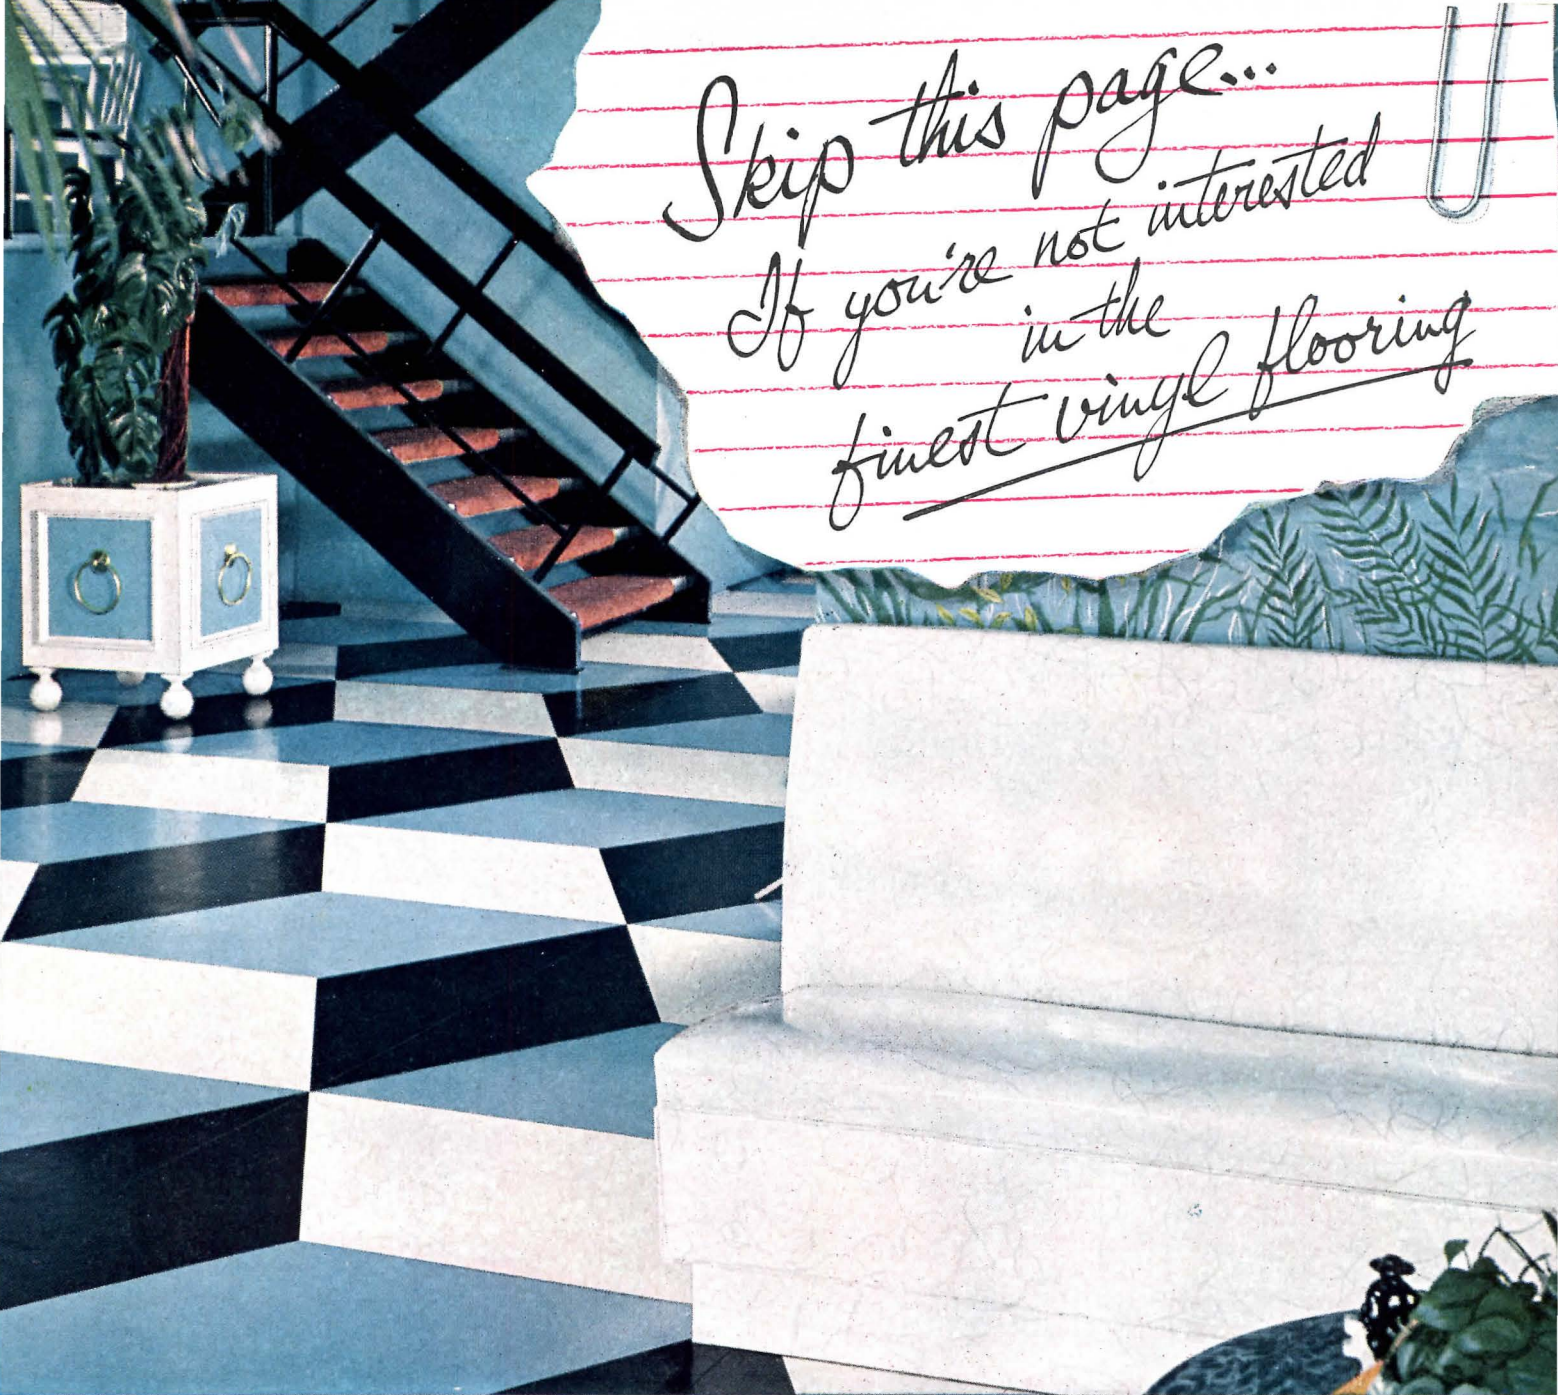 Skip this page...
If you're not interested
in the
finest vinyl flooring